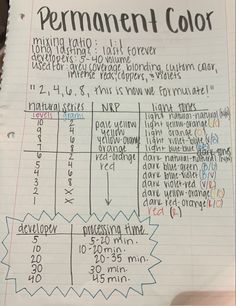 Permanent Color
mixing ratio : 1:1
long lasting : lasts forever
developers : 5-40 volume
used for : grey coverage, blonding, custom color,
intense reds, coppers, & violets
"2, 4, 6, 8, this is how we formulate!"
natural series NRP light tones
levels grams light natural-natural
10 light yellow-orange
9 pale yellow light violet-blue
8 yellow light blue-blue
7 orange dark tones
6 2 red-orange dark natural-natural
5 red dark blue-green
4 dark violet-blue
3 8 dark violet-red
2 x dark red-orange
1 x red (R)
developer processing time
5 5-20 min.
10 10-20 min.
20 20-35 min.
30 30 min.
40 45 min.